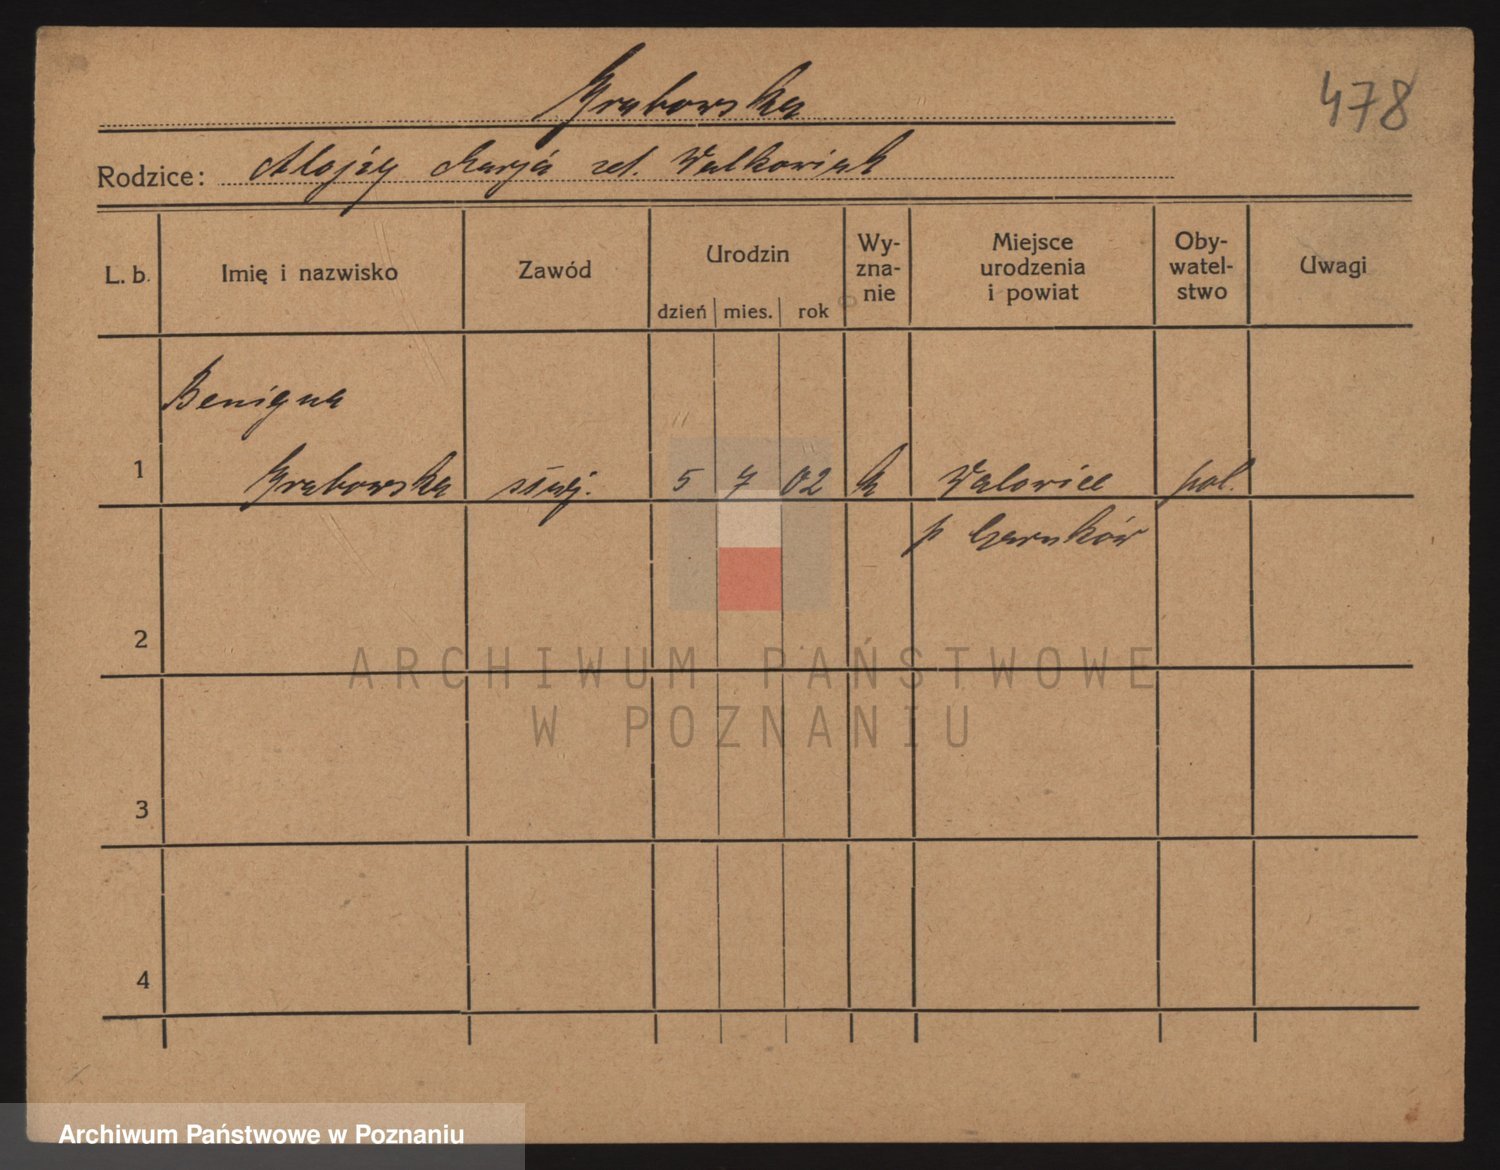 Grabowska
478
Rodzice: Alojzy Marja zd. Walkowiak
L. b.
Imię i nazwisko
Zawód
Urodzin
dzień mies. rok
Wy-
zna-
nie
Miejsce
urodzenia
i powiat
Oby-
watel-
stwo
Uwagi
Benigna
1 Grabowska służ. 5 7 02 k Walowice pol.
p Czarnków
2
3
4
ARCHIWUM PAŃSTWOWE
W POZNANIU
Archiwum Państwowe w Poznaniu